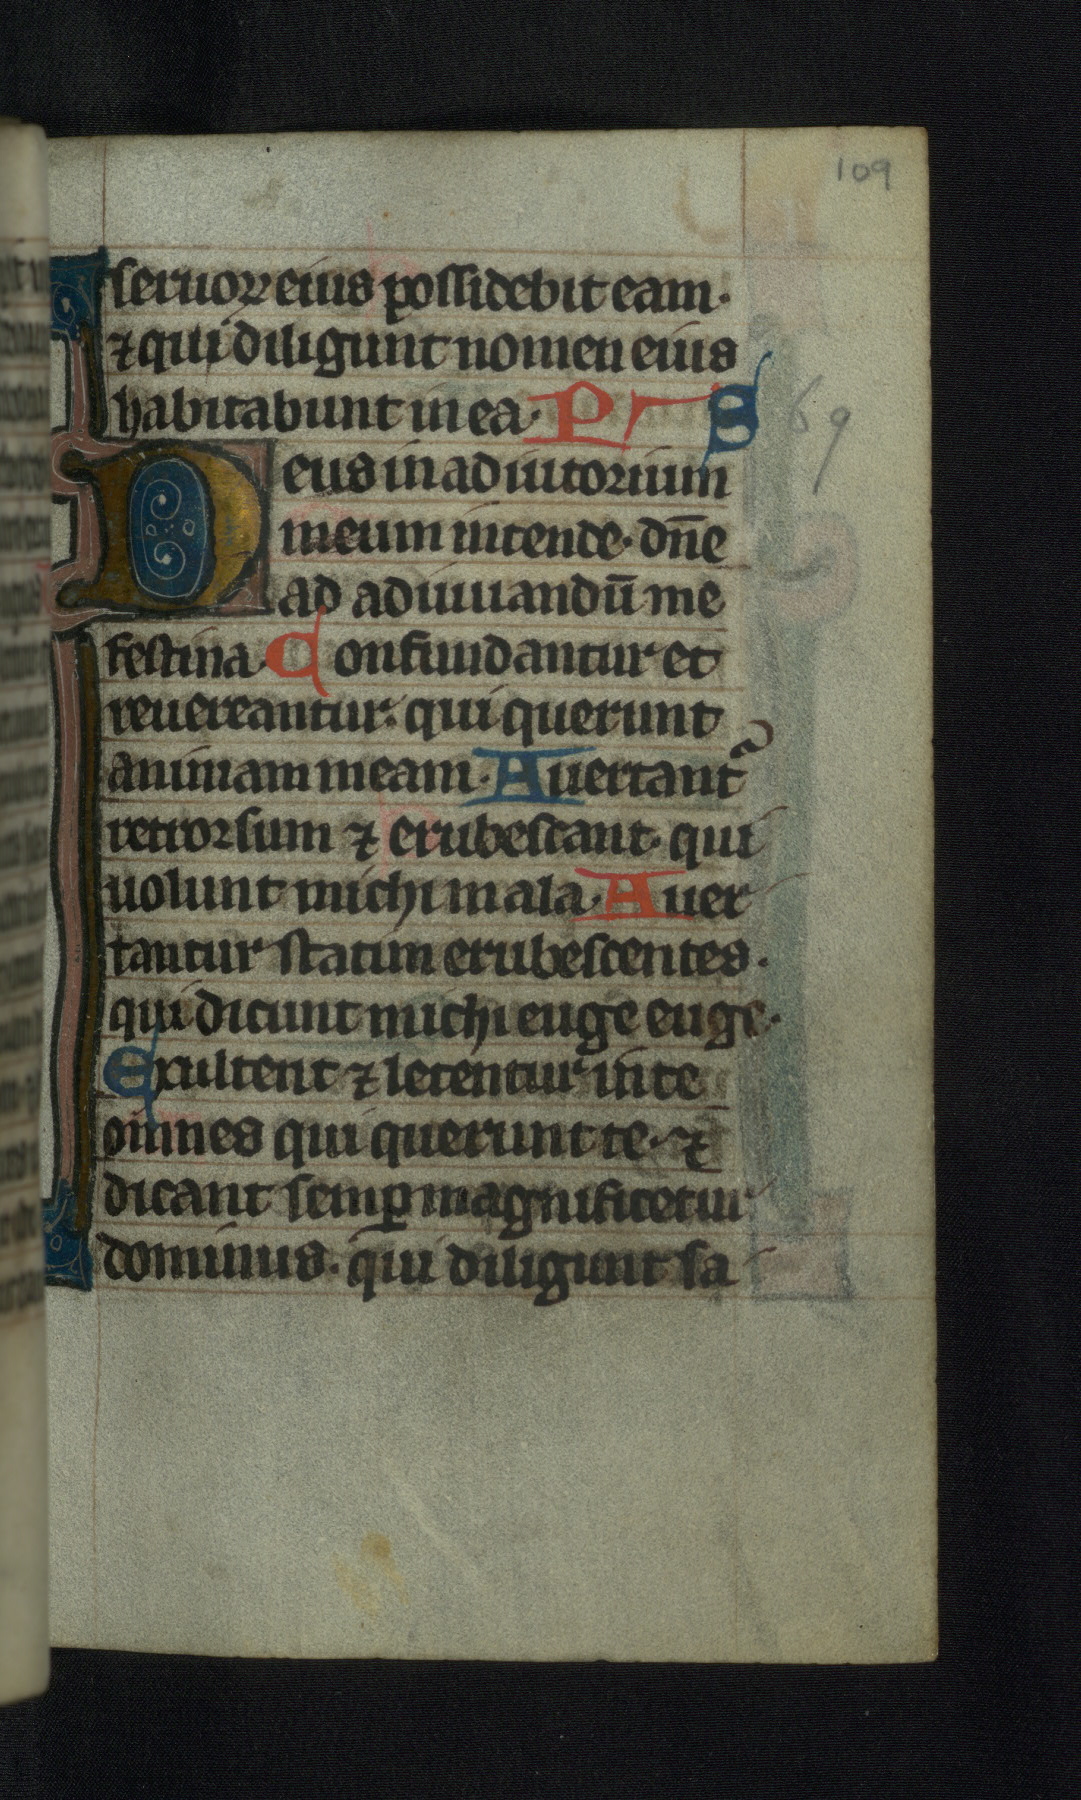 109
seruoꝝ eius possidebit eam.
⁊ qui diligunt nomen eius
habitabunt in ea. Ps
69
Deus in adiutorium
meum intende. dn̄e
ad adiuuandū me
festina. Confundantur et
reuereantur: qui querunt
animam meam. Auertant᷑
retrorsum ⁊ erubescant. qui
uolunt michi mala. Auer
tantur statim erubescentes.
qui dicunt michi euge euge.
Exultent ⁊ letentur in te
omnes qui querunt te. ⁊
dicant semꝑ magnificetur
dominus. qui diligunt sa